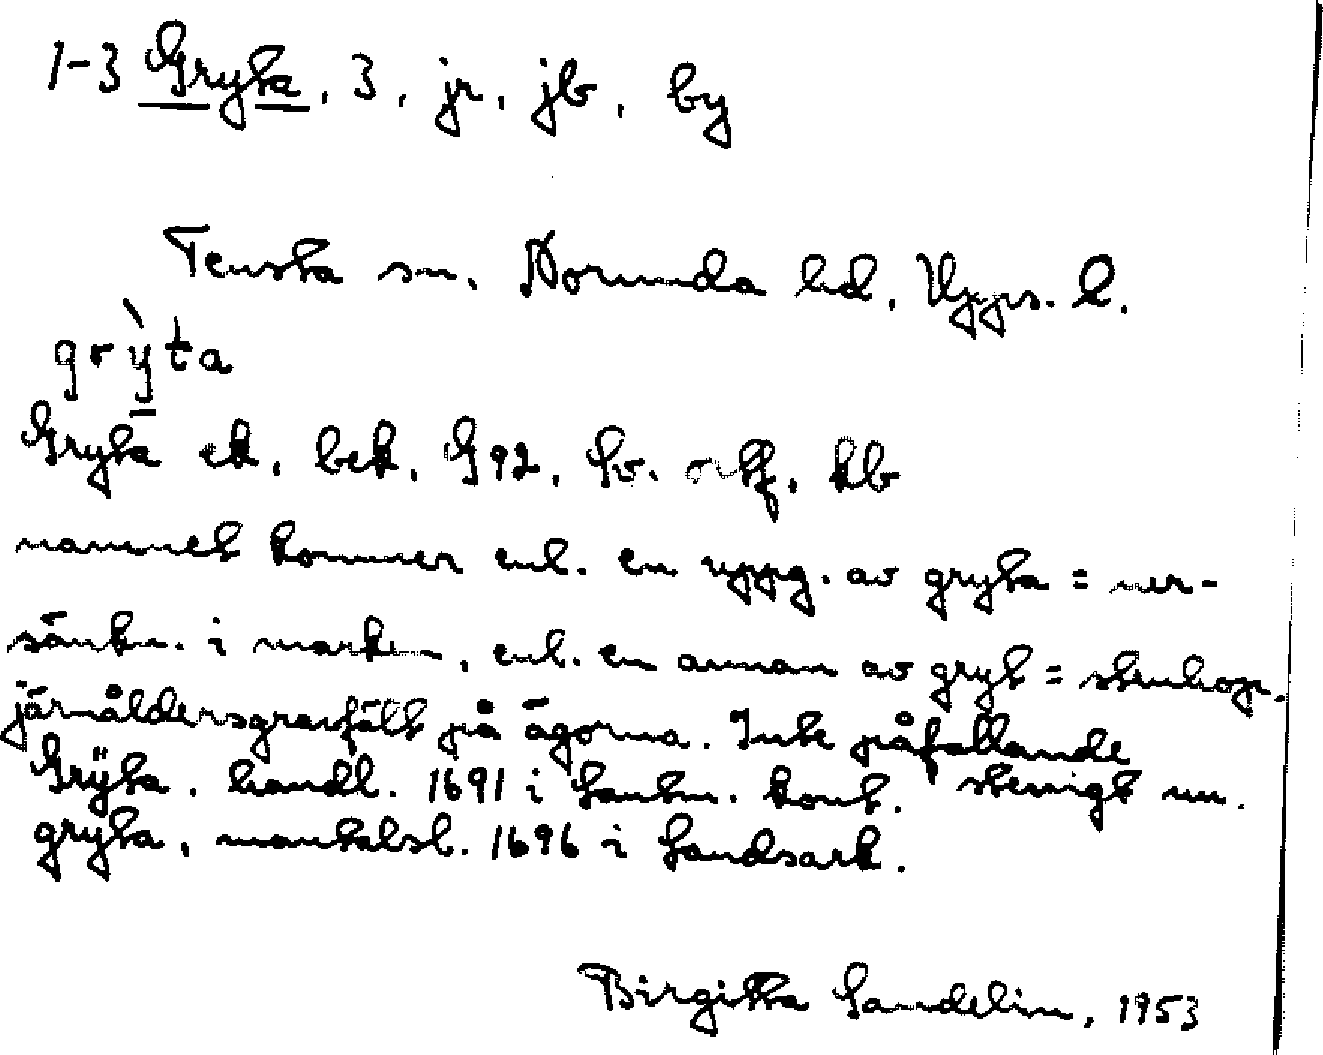 1-3 Gryta, 3, jr, jb, by
Tensta sn. Norunda hd, Upps. l.
grỳta
Gryta ek. bek. G92, Sv. ortf. kb
namnet kommer enl. en uppg. av gryta = ner-
sänkn. i marken, enl. en annan av gryt = stenhop.
järnåldersgravfält på ägorna. Inte påfallande
stenigt nu.
Grÿta, handl. 1691 i Lantm. kont.
gryta, mantalsl. 1696 i Landsark.
Birgitta Sandelin, 1953